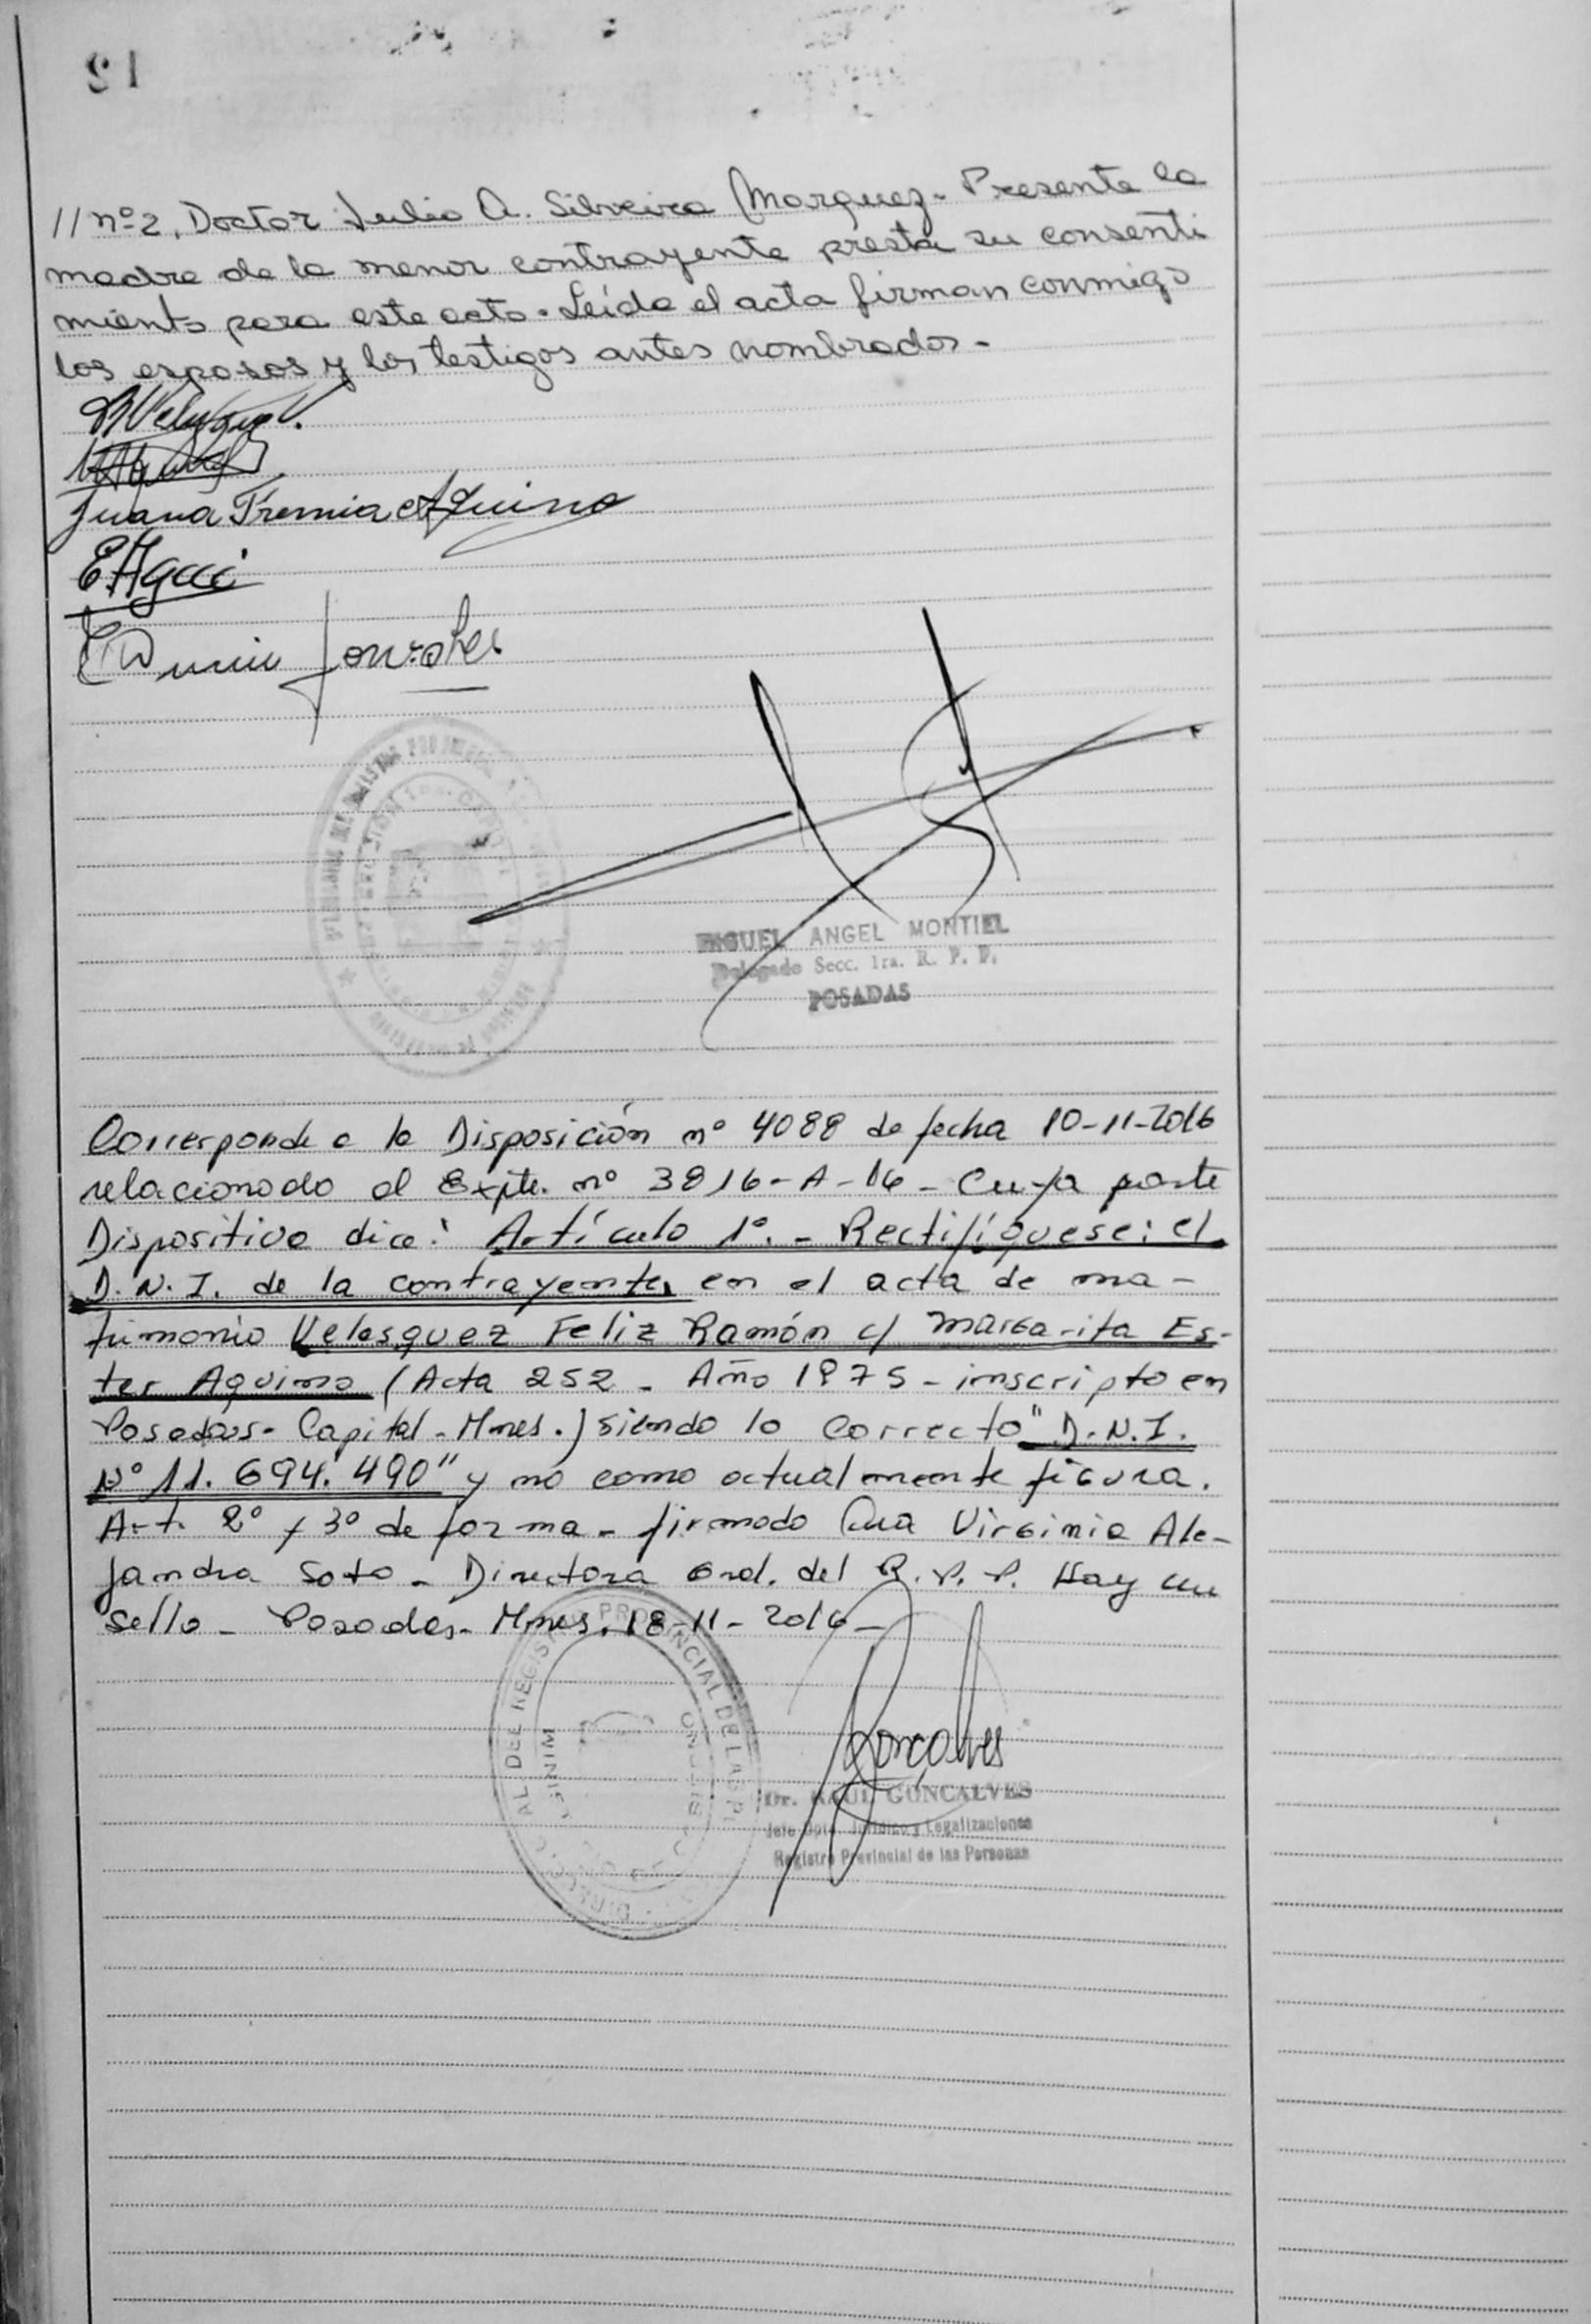 // nº 2, Doctor Julio A. Silveira Marquez - Presente la
madre de la menor contrayente presta su consenti
miento para este acto - Leída el acta firman conmigo
los esposos y los testigos antes nombrados -
Juana Fremia Aquino
MIGUEL ANGEL MONTIEL
Delegado Secc. 1ra. R. P. P.
POSADAS
Corresponde a la Disposición nº 4088 de fecha 10-11-2016
relacionado al Expte. nº 3816-A-16 - Cuya parte
Dispositiva dice: Artículo 1º. - Rectifíquese: el
D.N.I. de la contrayente, en el acta de ma-
trimonio Velasquez Feliz Ramón c/ Margarita Es-
ter Aquino (Acta 252 - Año 1975 - inscripto en
Posadas - Capital - Mnes.) siendo lo correcto "D.N.I.
Nº 11.694.490" y no como actualmente figura.
Art. 2º y 3º de forma - firmado Dra Virginia Ale-
jandra Soto - Directora Gral. del R.P.P. Hay un
sello - Posadas - Mnes. 18-11-2016 -
PROVINCIAL DE LAS
Gonçalves
Dr. RAUL GONCALVES
Jefe Dpto. Jurídico y Legalizaciones
Registro Provincial de las Personas